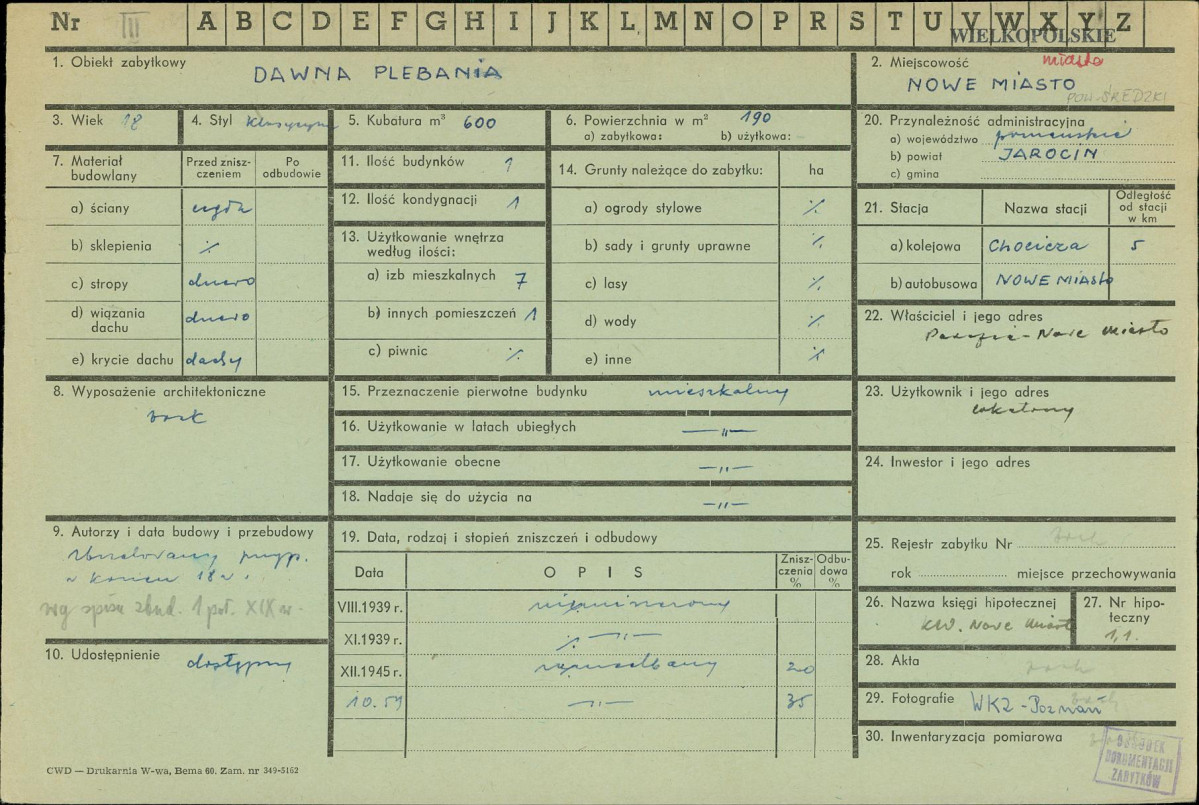 Nr III A B C D E F G H I J K L M N O P R S T U V W X Y Z
WIELKOPOLSKIE
1. Obiekt zabytkowy
DAWNA PLEBANIA
2. Miejscowość
miasto
NOWE MIASTO
POW. ŚREDZKI
3. Wiek 18
4. Styl
5. Kubatura m³ 600
6. Powierzchnia w m² 190
a) zabytkowa: b) użytkowa:
20. Przynależność administracyjna
a) województwo poznańskie
b) powiat JAROCIN
c) gmina
7. Materiał budowlany
Przed zniszczeniem
Po odbudowie
a) ściany cegła
b) sklepienia ./.
c) stropy drewno
d) wiązania dachu drewno
e) krycie dachu
11. Ilość budynków 1
12. Ilość kondygnacji 1
13. Użytkowanie wnętrza
według ilości:
a) izb mieszkalnych 7
b) innych pomieszczeń 1
c) piwnic ./.
14. Grunty należące do zabytku: ha
a) ogrody stylowe ./.
b) sady i grunty uprawne ./.
c) lasy ./.
d) wody ./.
e) inne ./.
21. Stacja
Nazwa stacji
Odległość
od stacji
w km
a) kolejowa Chocicza 5
b) autobusowa NOWE MIASTO
22. Właściciel i jego adres
Parafia - Nowe Miasto
8. Wyposażenie architektoniczne
brak
15. Przeznaczenie pierwotne budynku mieszkalny
16. Użytkowanie w latach ubiegłych —"—
17. Użytkowanie obecne —"—
18. Nadaje się do użycia na —"—
23. Użytkownik i jego adres
lokatorzy
24. Inwestor i jego adres
9. Autorzy i data budowy i przebudowy
zbudowany przyp.
w końcu 18 w.
wg spisu zbud. 1 poł. XIX w.
10. Udostępnienie dostępny
19. Data, rodzaj i stopień zniszczeń i odbudowy
Data
OPIS
Zniszczenia %
Odbudowa %
VIII.1939 r.
XI.1939 r. ./. —"—
XII.1945 r. 20
10.59 —"— 35
25. Rejestr zabytku Nr brak
rok miejsce przechowywania
26. Nazwa księgi hipotecznej
KW. Nowe Miasto
27. Nr hipoteczny
1,1.
28. Akta brak
29. Fotografie WKZ - Poznań
30. Inwentaryzacja pomiarowa
OŚRODEK
DOKUMENTACJI
ZABYTKÓW
CWD — Drukarnia W-wa, Bema 60. Zam. nr 349-5162